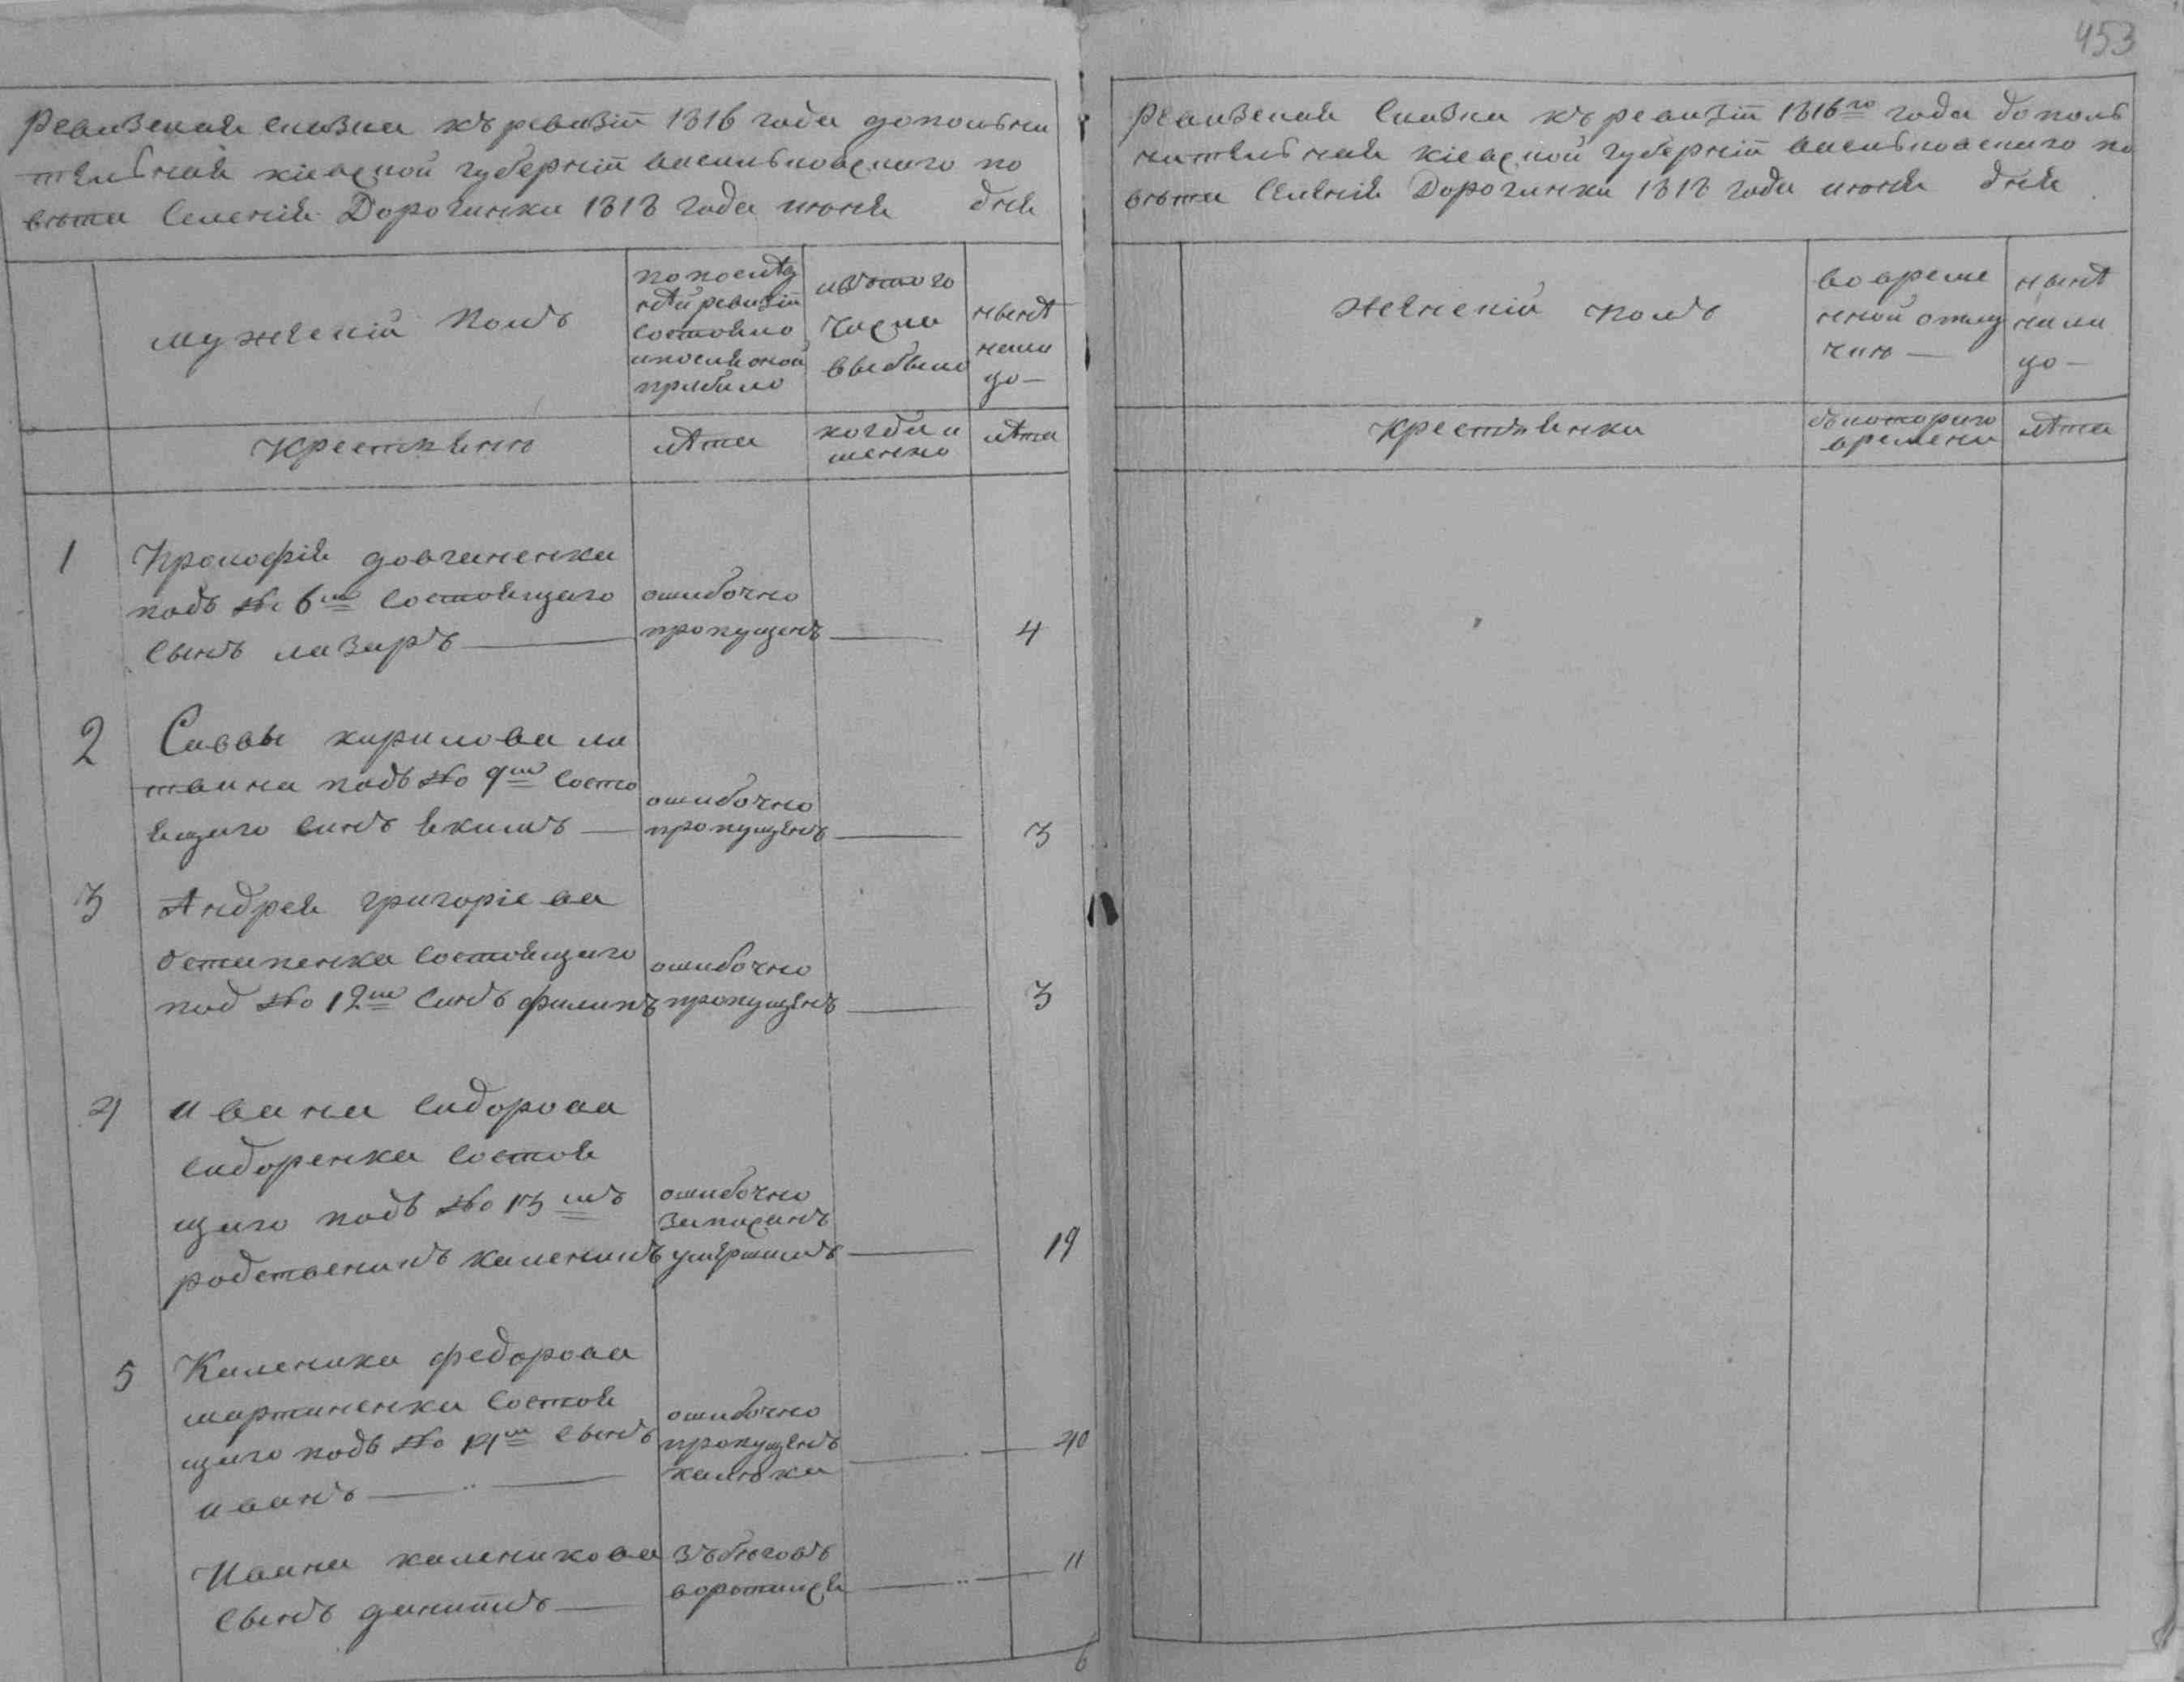 453
Ревизская сказка къ ревизіи 1816 года допольни
тельная кіевской губерніи васильковского по
вѣта Селенія Дорогинки 1818 года июня дня
мужескій полъ
по послѣд
нѣй ревизіи
состояло
и после оной
прибыло
изтого
числа
выбыло
нынѣ
на ли
цо —
Крестьяне
лѣта
когда и
менно
лѣта
1
Прокофія довганенка
подъ № 6мъ состоящаго
сынъ лазаръ
ошибочно
пропущенъ
4
2
Саввы кирилова ли
твина подъ № 9мъ состо
ящаго синъ якимъ
ошибочно
пропущенъ
3
3
Андрея григоріева
остапенка состоящаго
под № 12мъ синъ филипъ
ошибочно
пропущенъ
3
4
ивана сидорова
сидоренка состоя
щаго подъ № 13мъ
родственикъ каленикъ
ошибочно
записанъ
умершимъ
19
5
Каленика федорова
мартиненка состоя
щаго подъ № 14мъ сынъ
иванъ
ошибочно
пропущенъ
калѣка
40
Ивана каленикова
сынъ даниилъ
зъ бѣговъ
воротился
11
6
Ревизская Сказка къ ревизіи 1816го года дополь
нительная кіевской губерніи васильковского по
вѣта Селенія Дорогинки 1818 года июня дня
женскій полъ
во време
нной отлу
чкѣ —
нынѣ
на ли
цо —
Крестьянки
съ которого
времени
лѣта